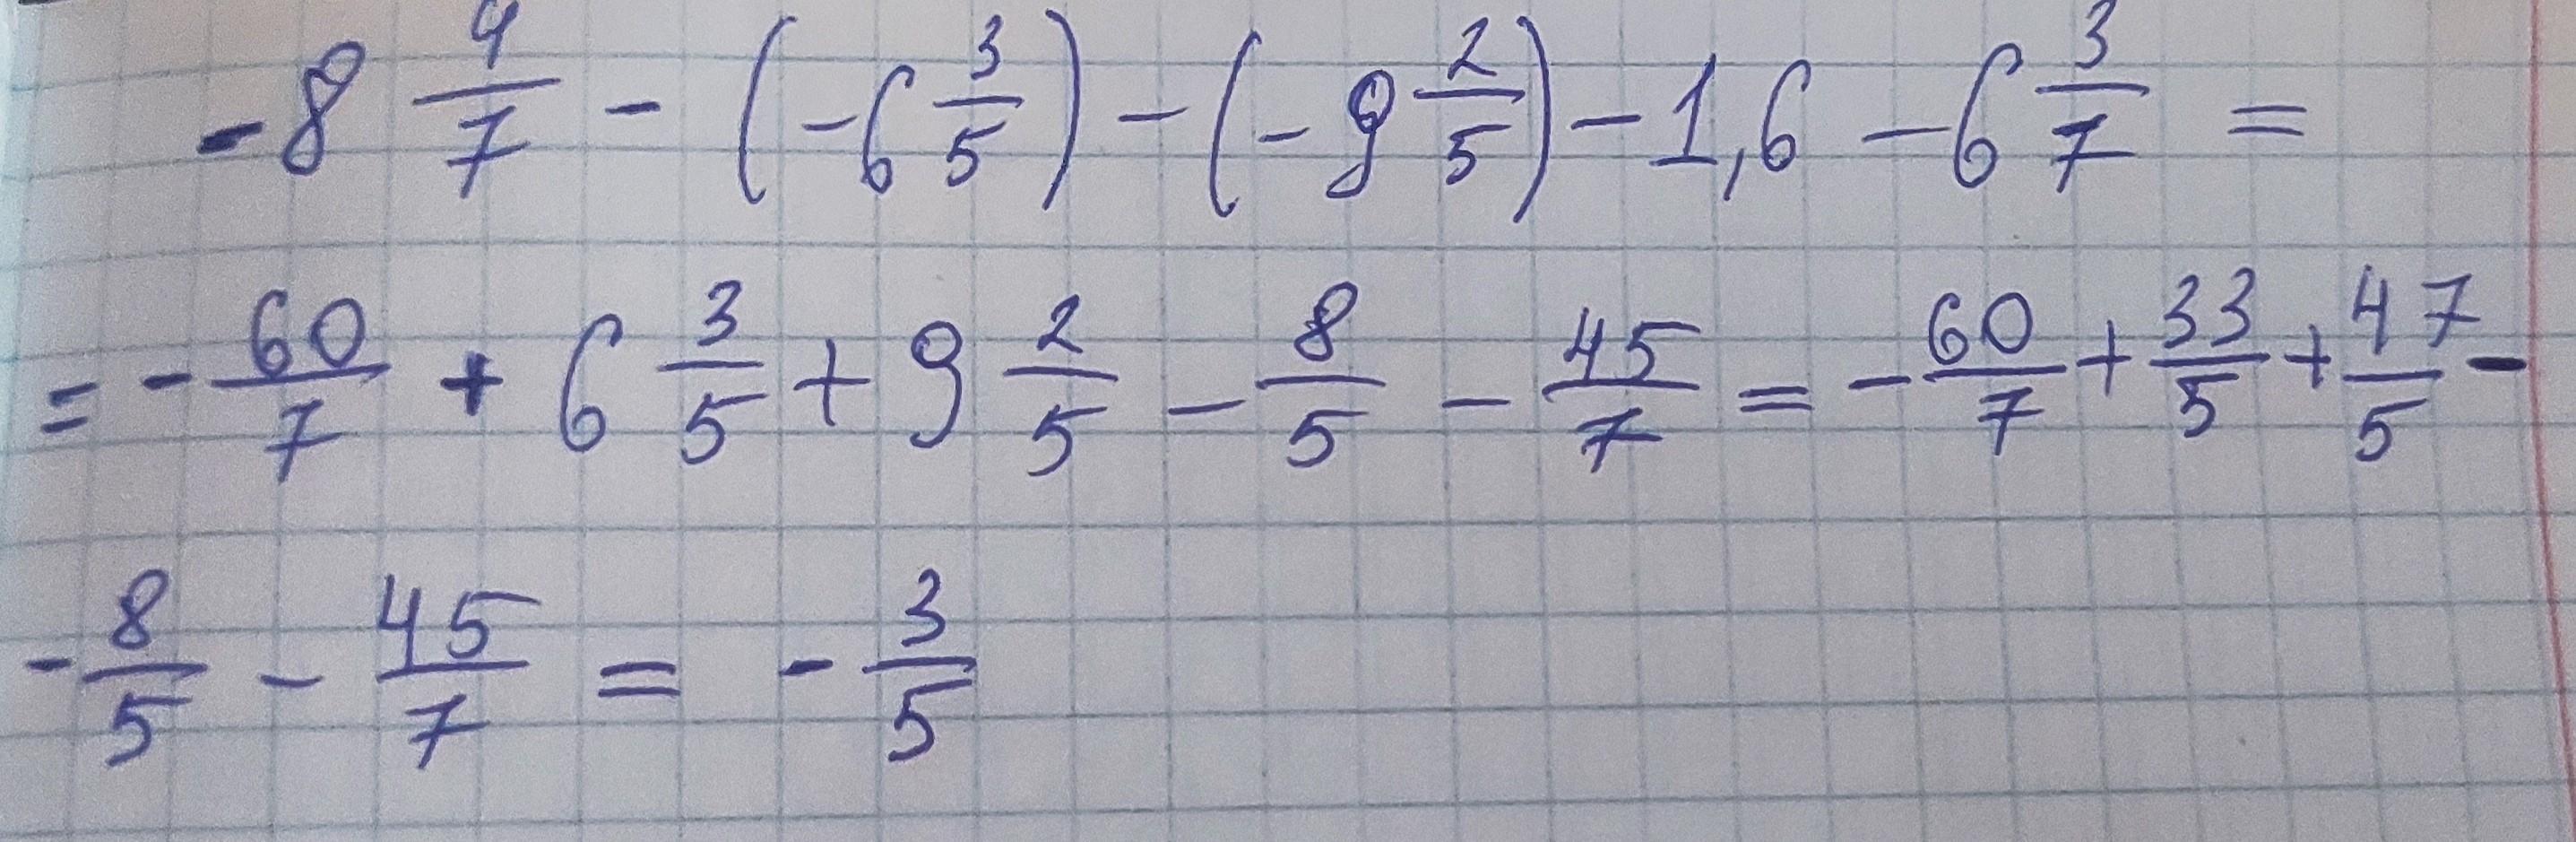 -8 4/7 - (-6 3/5) - (-9 2/5) - 1,6 - 6 3/7 =
= - 60/7 + 6 3/5 + 9 2/5 - 8/5 - 45/7 = - 60/7 + 33/5 + 47/5 -
- 8/5 - 45/7 = - 3/5